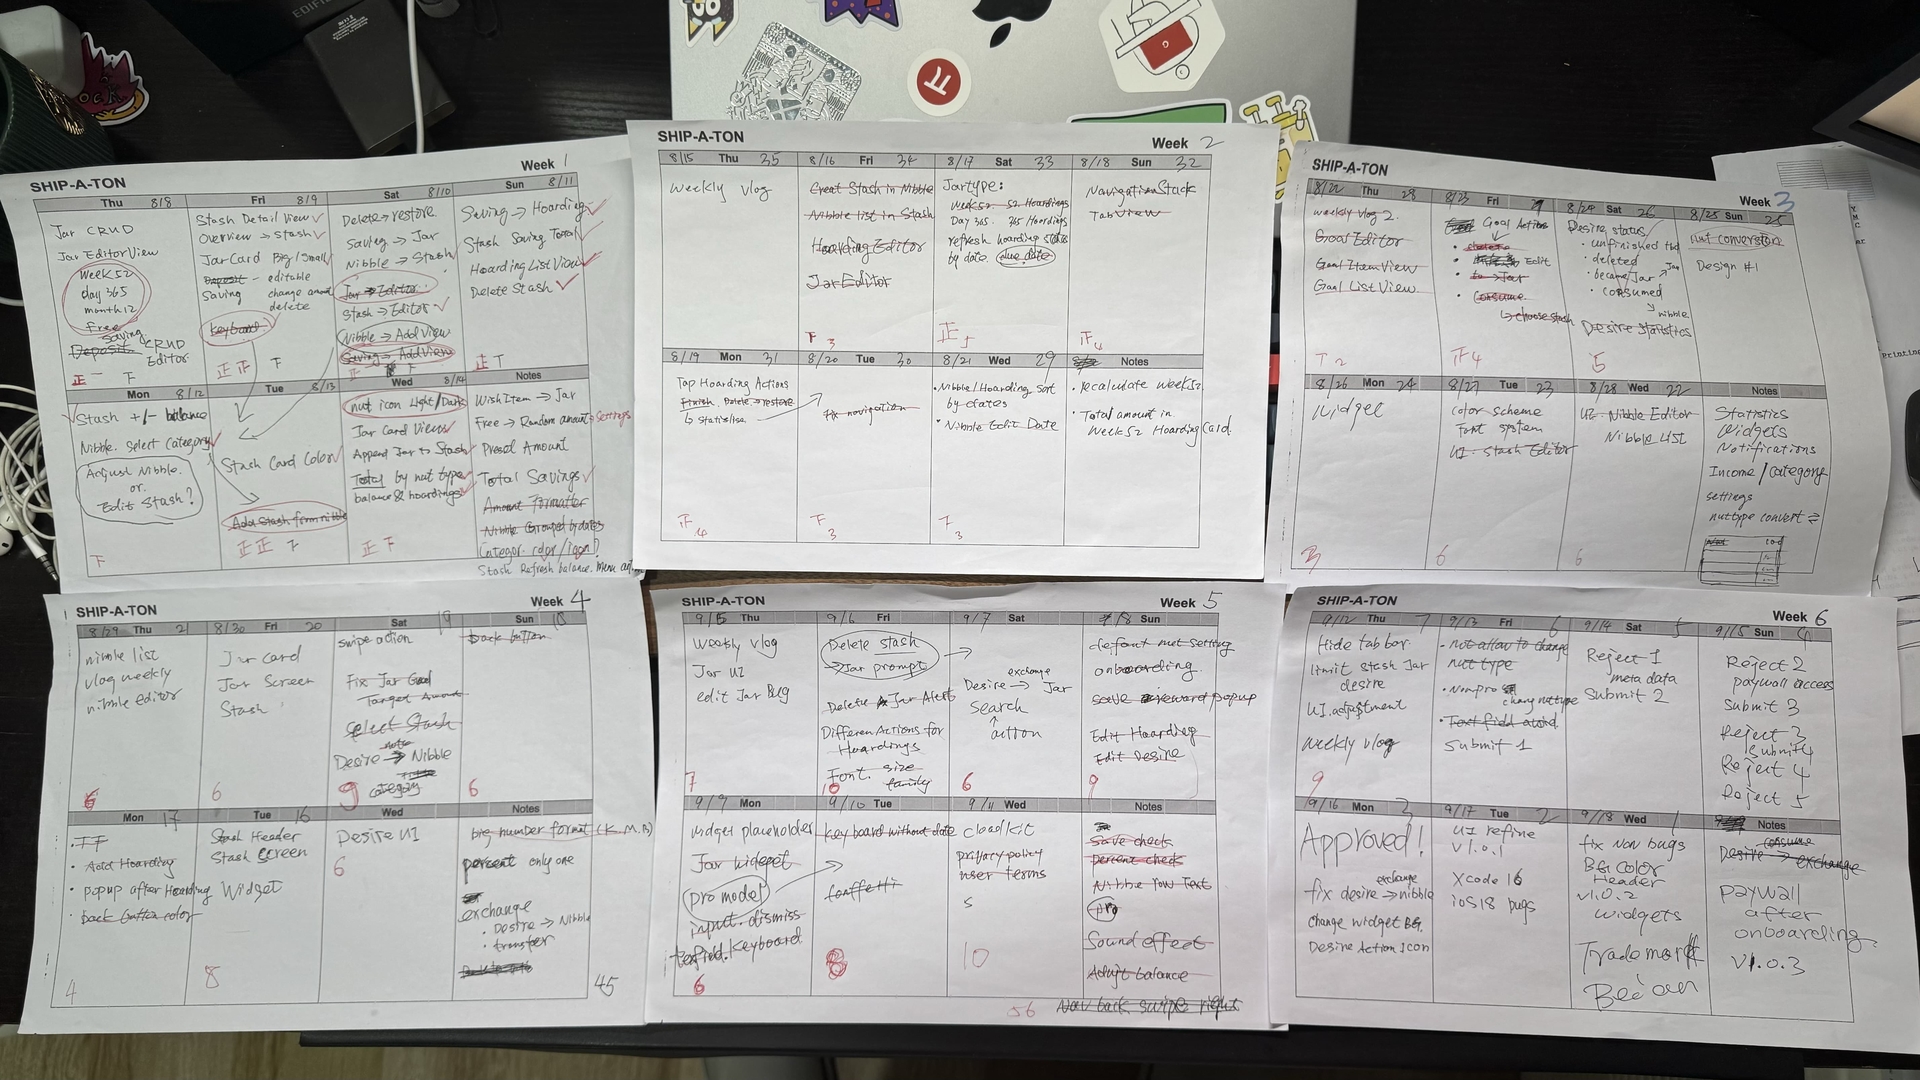 SHIP-A-TON
Week 1
Thu 8/8
Jar CRUD
Jar EditorView
Week 52
day 365
month 12
Free
Saving
Deposit CRUD
Editor
正一 下
Fri 8/9
Stash Detail View
Overview → Stash
JarCard Big/Small
Deposit - editable
Saving change amount
delete
Keyboard
正正 下
Sat 8/10
Delete → restore
Saving → Jar
Nibble → Stash
Jar → Editor
Stash → Editor
Nibble → Add View
Saving → Add View
Sun 8/11
Saving → Hoarding
Stash Saving Total
Hoarding List View
Delete Stash
正 T
Mon 8/12
Stash +/- balance
Nibble. Select Category
Adjust Nibble.
or.
Edit Stash?
下
Tue 8/13
Stash Card Color
Add Stash form nibble
正正 下
Wed 8/14
nut icon Light/Dark
Jar Card View
Append Jar to Stash
Total by nut type
balance & hoardings
正 下
Notes
WishItem → Jar
Free → Random amount → Settings
Preset Amount
Total Savings
Amount Formatter
Nibble Grouped by dates
Categor. color/icon?
Stash Refresh balance. Menu
SHIP-A-TON
Week 2
8/15 Thu 35
Weekly vlog
8/16 Fri 34
Creat Stash in Nibble
Nibble list in Stash
Hoarding Editor
Jar Editor
下 3
8/17 Sat 33
Jartype:
Week 52. 52 Hoardings
Day 365. 365 Hoardings
refresh hoarding status
by date. due date
正 5
8/18 Sun 32
NavigationStack
TabView
4
8/19 Mon 31
Tap Hoarding Actions
Finish. Delete → restore
↳ Statistics
4
8/20 Tue 30
fix navigation
下 3
8/21 Wed 29
• Nibble/Hoarding Sort
by dates
• Nibble Edit Date
下 3
Notes
• recalculate week52
• Total amount in
Week 52 Hoarding Card.
SHIP-A-TON
Week 3
8/22 Thu 28
weekly vlog 2.
Goal Editor
Goal ItemView
Goal List View
T 2
8/23 Fri
Goal Action
• delete
• Edit
• to → Jar
• Consume.
↳ choose stash
4
8/24 Sat 26
Desire status
• unfinished
• deleted
• became Jar → Jar
• consumed
↘ nibble
Desire Statistics
5
8/25 Sun 25
nut conversion
Design #1
8/26 Mon 24
Widget
3
8/27 Tue 23
Color scheme
Font system
UI. Stash Editor
6
8/28 Wed 22
UI. Nibble Editor
Nibble List
6
Notes
Statistics
Widgets
Notifications
Income/Category
settings
nuttype convert ⇌
SHIP-A-TON
Week 4
8/29 Thu 21
nibble list
vlog weekly
nibble editor
6
8/30 Fri 20
Jar card
Jar Screen
Stash
6
Sat 19
swipe action
Fix Jar Goal
Target Amount
Select Stash
note
Desire → Nibble
Category
9
Sun 18
back button
6
Mon 17
• Add Hoarding
• popup after Hoarding
• back button color
4
Tue 16
Stash Header
Stash Screen
Widget
8
Wed
Desire UI
6
Notes
big number format (K.M.B)
percent only one
exchange
• Desire → Nibble
• transfer
45
SHIP-A-TON
Week 5
9/5 Thu
Weekly vlog
Jar UI
edit Jar Bug
7
9/6 Fri
Delete stash
→ Jar prompt
Delete Jar Alert
Differen Actions for
Hoardings
Font. size
family
10
9/7 Sat
exchange
Desire → Jar
Search
↑
action
6
9/8 Sun
defaut nut setting
onboarding
save reward popup
Edit Hoarding
Edit Desire
9
9/9 Mon
widget placeholder
Jar widget
pro model
input. dismiss
Keyboard
6
9/10 Tue
key board without date
confetti
8
9/11 Wed
cloudkit
privacy policy
user terms
S
10
Notes
Save check
percent check
Nibble row Text
Pro
Sound effect
Adujt balance
56
Nav back swipe right
SHIP-A-TON
Week 6
9/12 Thu 7
Hide tab bar
limit stash Jar
desire
UI. adjustment
Weekly vlog
9
9/13 Fri 6
• not allow to change
nut type
• Nonpro
change nuttype
• Text field
Submit 1
9/14 Sat 5
Reject 1
meta data
Submit 2
9/15 Sun 4
Reject 2
paywall access
Submit 3
Reject 3
Submit 4
Reject 4
Reject 5
9/16 Mon 3
Approved!
exchange
fix desire → nibble
change widget BG.
Desire Action Icon
9/17 Tue 2
UI refine
v1.0.1
Xcode 16
iOS18 bugs
9/18 Wed 1
fix Nav bugs
BG color
Header
v1.0.2
widgets
Trademark
Notes
consume
Desire → exchange
paywall
after
onboarding.
V1.0.3